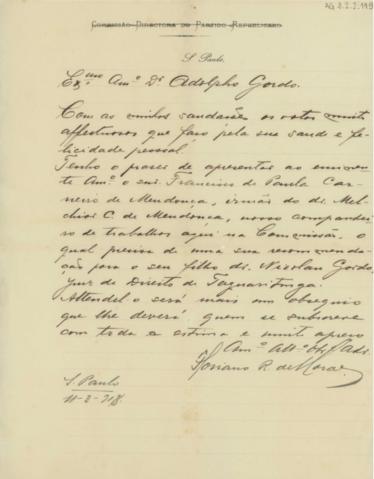 AG 2.2.2.119
Commissão Directora do Partido Republicano
S. Paulo.
Exmo Amo Dr. Adolpho Gordo.
Com as minhas saudações os votos muito
affectuosos que faço pela sua saude e fe-
licidade pessoal
Tenho o prazer de apresentar ao eminen-
te Amo o snr. Francisco de Paula Car-
neiro de Mendonça, irmão do dr. Mel-
chior C. de Mendonça, nosso companhei-
ro de trabalhos aqui na Commissão, o
qual precisa de uma sua recommenda-
ção para o seu filho dr. Nicolau Gordo,
juiz de Direito de Taquaritinga.
Attendel o será mais um obsequio
que lhe deverá quem se subscreve
com toda a estima e muito apreço
Amo Atto
R. de Moraes
S. Paulo
11-2-918.